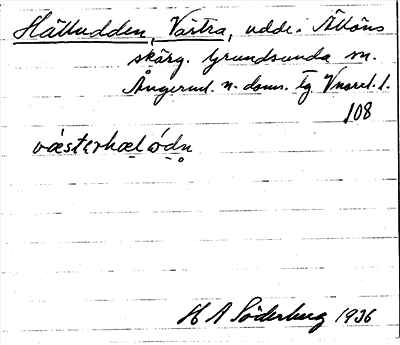 Hälludden, Västra, udde i Åböns
skärg. Grundsunda sn.
Ångerml. n. doms. Tg Vnorrl. l.
108
væsterhæludn
H A Söderberg 1936